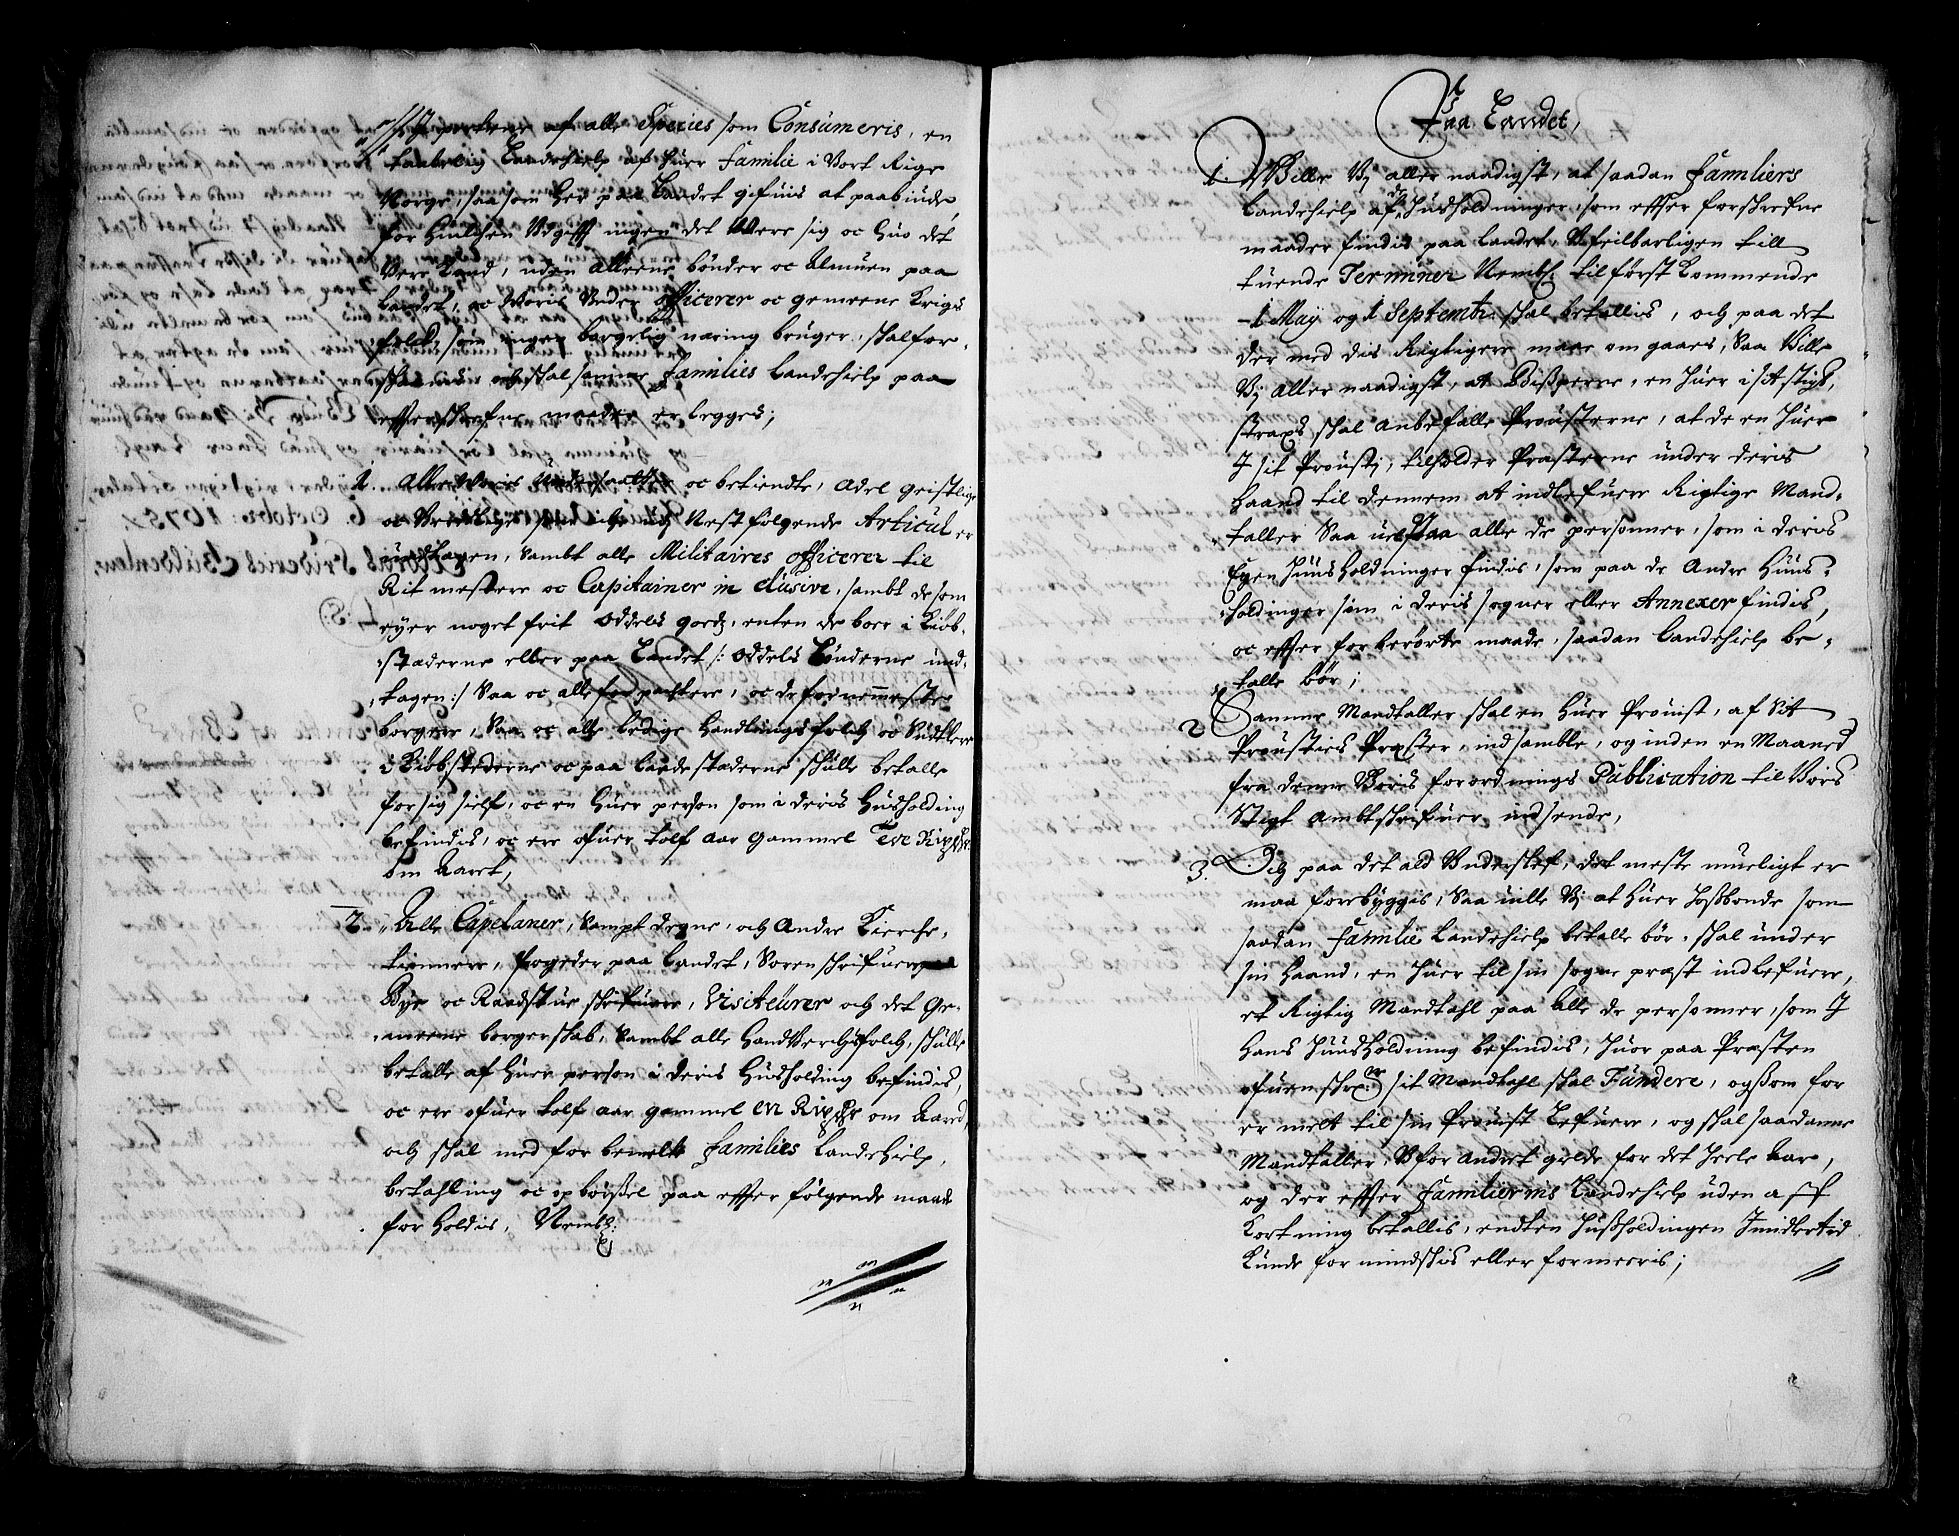 parterne af alle Species som Consumeris, en
taalelig Landehielp af huer Familie i Vort Rige
Norge, saa som her paa Landet gifuis at paabiude,
for huilchen Vdgifft ingen det Være sig oc huo det
Vere kand, uden alleene bønder oc Almuen paa
Landet, oc Woris Under officerer oc gemeene Krigs
folch, som ingen borgelig næring bruger, skal for-
skaanis, och skal samme Families Landehielp paa
effterskrefne maader erlegges;
1. Alle Woris Undersaatter oc betiendte, Adel Geistlige
oc Verdslige, som iche udj Nestfølgende Articul er
undtagen, Sambt alle Militaires officerer til
Ritmestere oc Capitainer inclusive, sambt de som
eyer noget frit Oddels gods, enten de boer i Kiøb-
stæderne eller paa Landet /: Oddels Bønderne und-
tagen :/ Saa oc alle forpachtere, oc de fornemmeste
borgere, Saa oc alle ledige Handlingsfolch oc
i Kiøbstederne oc paa Ladestæderne skulle betalle
for sig sielf, oc en huer person som i deris Husholding
befindis, oc ere ofuer tolf aar gammel Toe Rixdr
om Aaret,
2. Alle Capelaner, Sampt degne, och andre Kirche-
tiennere, fogeder paa Landet, Sorenskrifuere
Bye oc Raadstue skrifuere, Visiteurer och det Ge-
meene borgerskab, Sambt alle Handverchsfolch, skulle
betalle af huer person i deris Husholding befindis,
oc ere ofuer tolf aar gammel en Rixdr om Aared,
och skal med forbemelte Families Landehielp,
betahling oc opbørsel paa effterfølgende maade
forholdis, Nembl:
Paa Landet,
1 Wille Vj allernaadigst, at saadan Familiers
Landehielp af de Husholdninger, som effter forskrefne
maader findis paa Landet, Vfeilbarligen till
tuende Terminer Nembl: til først kommende
1 Maÿ og 1 Septembr: skal betallis, och paa det
der med dis Rigtigere maae omgaaes, Saa Ville
Vj allernaadigst, at Bisperne, en huer i sit Stigt,
strax skal anbefalle Prousterne, at de en huer
I sit Proustj, tilholder Præsterne under deris
haand til dennem at indlefuere Rigtige Mand-
taller Saa uel paa alle de personner, som i deris
Egen Huusholdninger findis, som paa de andre Huus-
holdinger som i deris sogner eller Annexer findis,
oc effter forberørte maade, saadan Landehielp be-
talle bør;
2 Samme Mandtaller skal en huer Prouist, af Sit
Prousties Præster, indsamble, og inden en Maaned
fra denne Woris forordnings Publication til Vors
Stigt Ambtskrifuer indsende,
3. Och paa det ald Vnderslef, det meste mueligt er
maa forebyggis, Saa uille Vj at huer Hosbonde som
saadan Familie Landehielp betalle bør, skal under
sin Haand, en huer til sin sogne præst indlefuere,
et Rigtig Mandtahl paa alle de personner, som I
Hans Huusholdning befindis, huor paa Præsten
ofuenskr:ne sit Mandtahl skal Fundere, og som for
er melt til sin Prouist Lefuere, og skal saadanne
Mandtaller, Vforandret gielde for det heele Aar,
og der effter Familiernis Landehielp uden aff
kortning betallis, endten Husholdingen Imidlertid
kunde formindskis eller formeeris;